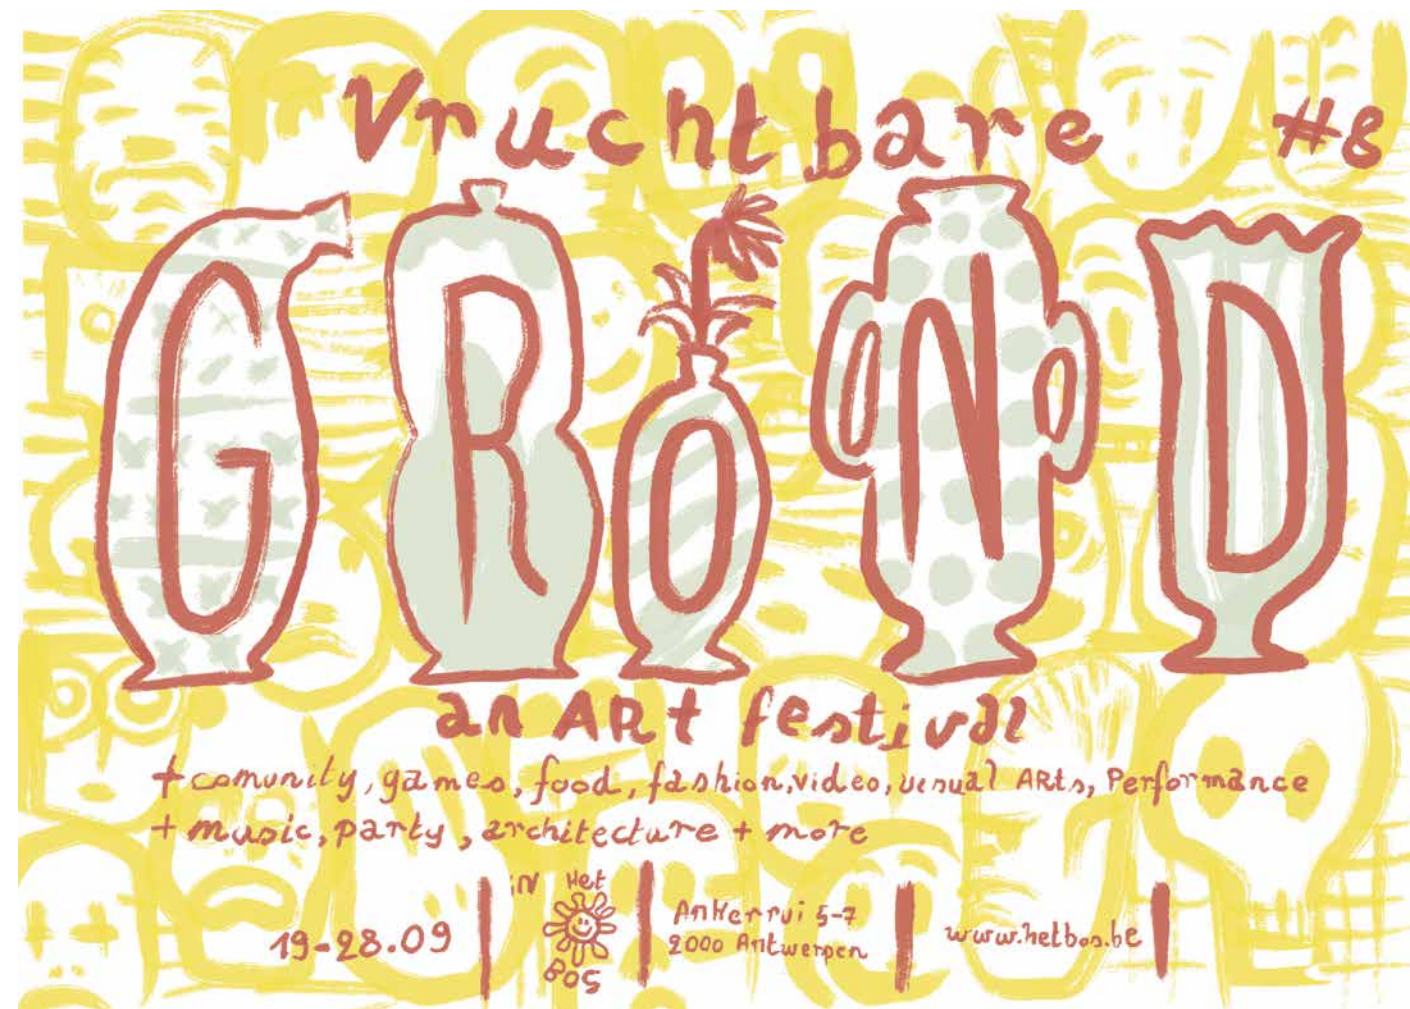 Vruchtbare #8
GRoND
an ARt festival
+ comunity, games, food, fashion, video, visual ARts, Performance
+ music, party, architecture + more
19-28.09
iN Het
BOS
Ankerrui 5-7
2000 Antwerpen
www.hetbos.be